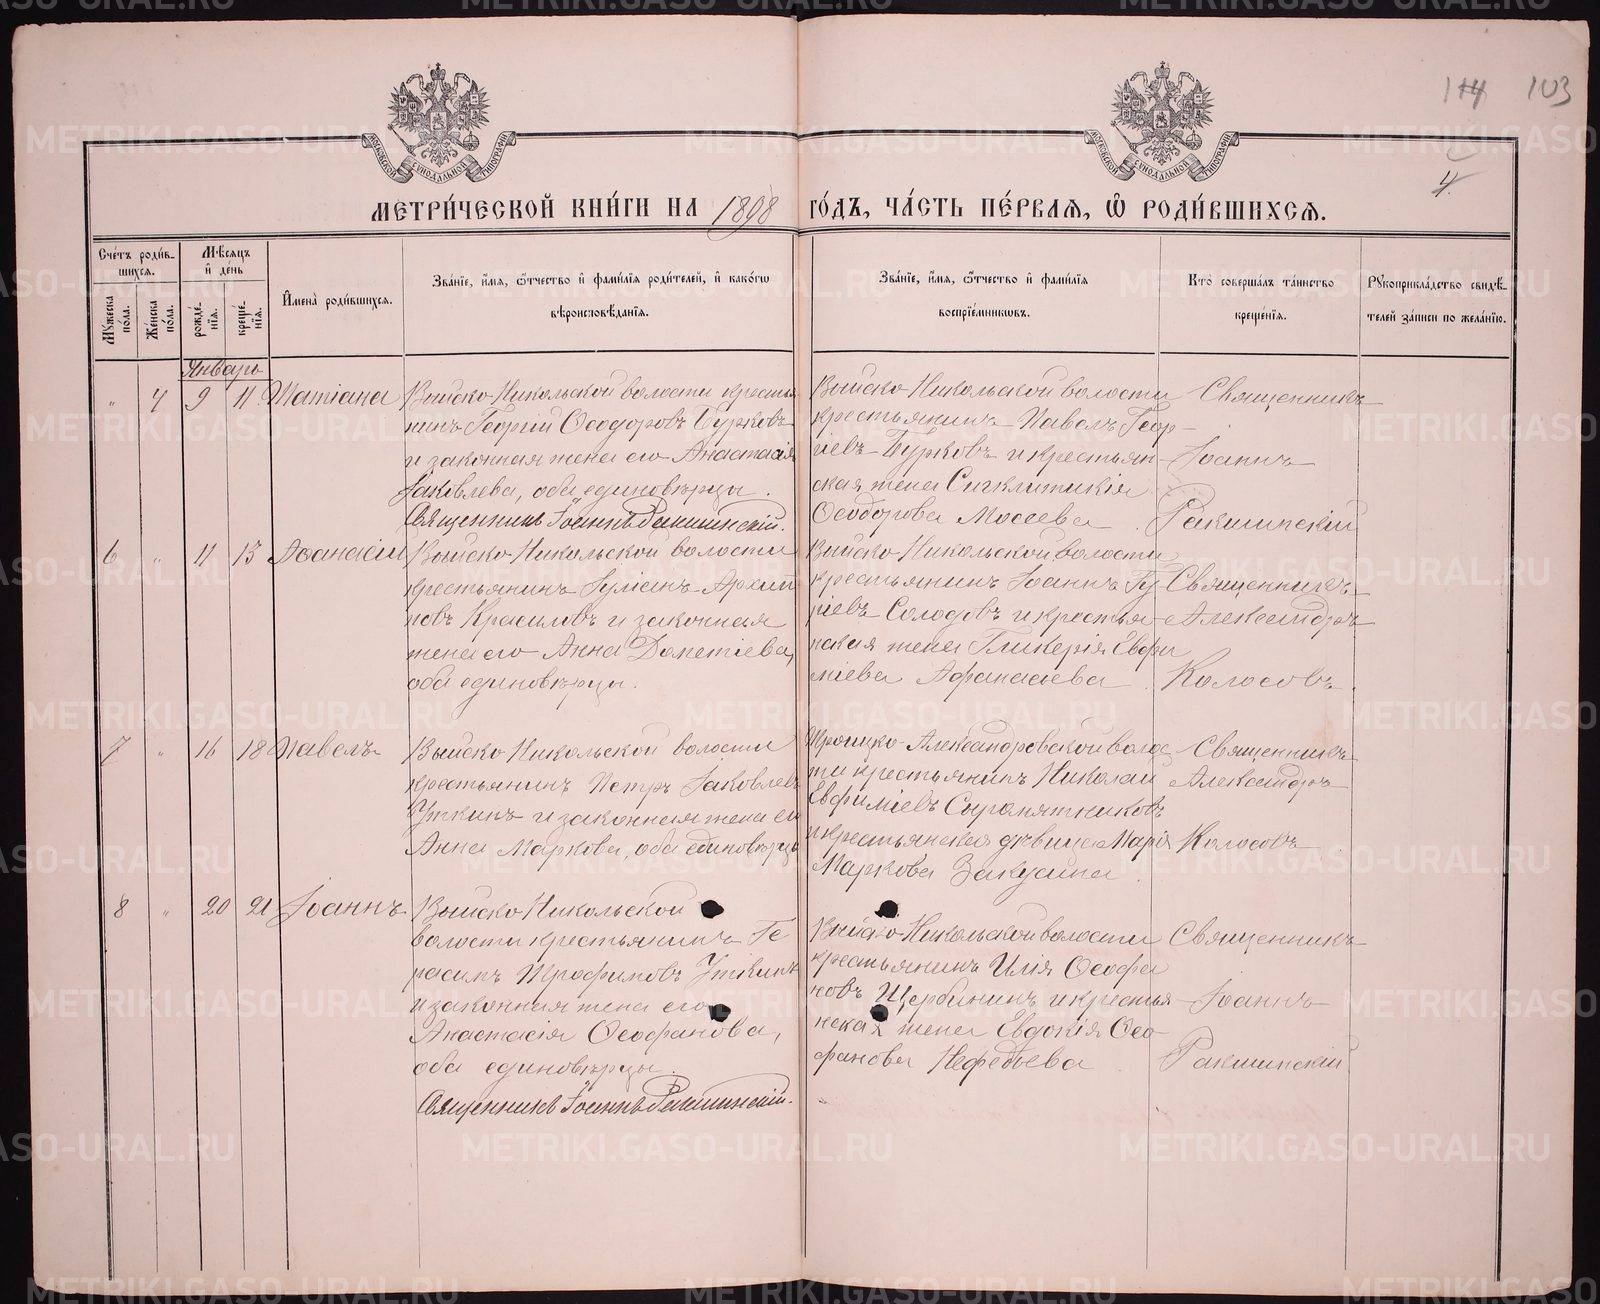 174 103
4
МОСКОВСКОЙ СѴНОДАЛЬНОЙ ТИПОГРАФІИ
МОСКОВСКОЙ СѴНОДАЛЬНОЙ ТИПОГРАФІИ
МЕТРИ́ЧЕСКОЙ КНИ́ГИ НА 1898 ГО́ДЪ, ЧА́СТЬ ПЕ́РВАЯ, Ѽ РОДИ́ВШИХСЯ.
Сче́тъ роди́в-
шихся.
Мꙋжеска по́ла.
Же́нска по́ла.
Мѣ́сяцъ
и҆ де́нь
рожде́-
нїя.
креще́-
нїя.
И҆мена̀ роди́вшихся.
Зва́нїе, и҆́мя, ѻ҆́тчество и҆ фами́лїя роди́телей, и҆ како́гѡ
вѣроисповѣ́данїя.
Зва́нїе, и҆́мя, ѻ҆́тчество и҆ фами́лїя
воспрїе́мникѡвъ.
Кто̀ соверша́лъ та́инство
креще́нїя.
Рꙋкоприкла́дство свидѣ́-
телей за́писи по жела́нїю.
Январь
„ 4 9 11 Татіана
Выйско-Никольской волости крестья
нинъ Георгій Ѳеодоровъ Бурковъ
и законная жена его Анастасія
Іаковлева, оба единовѣрцы.
Священникъ Іоаннъ Ракшинскій.
Выйско-Никольской волости
крестьянинъ Павелъ Геор-
гіевъ Бурковъ и крестьян-
ская жена Сигклитикія
Ѳеодорова Мосеева
Священникъ
Іоаннъ
Ракшинскій
6 „ 11 13 Аѳанасій
Выйско-Никольской волости
крестьянинъ Іуліанъ Архип
повъ Красиловъ и законная
жена его Анна Дометіева,
оба единовѣрцы.
Выйско-Никольской волости
крестьянинъ Іоаннъ Гу
ріевъ Солодовъ и крестья-
нская жена Гликерія Евфи
міева Афанасьева
Священникъ
Александръ
Колосовъ.
7 „ 16 18 Павелъ
Выйско-Никольской волости
крестьянинъ Петръ Іаковлевъ
Уткинъ и законная жена его
Анна Маркова, оба единовѣрцы
Троицко-Александровской волос
ти крестьянинъ Николай
Евфиміевъ Сыропятниковъ
и крестьянская дѣвица Марія
Маркова
Священникъ
Александръ
Колосовъ
8 „ 20 21 Іоаннъ
Выйско-Никольской
волости крестьянинъ Ге
расимъ Трофимовъ Уткинъ
и законная жена его
Анастасія Ѳеофанова,
оба единовѣрцы.
Священникъ Іоаннъ Ракшинскій.
Выйско-Никольской волости
крестьянинъ Илія Ѳеофа
новъ Щербининъ и крестья
нская жена Евдокія Ѳео-
фанова Нефедьева
Священникъ
Іоаннъ
Ракшинскій
METRIKI.GASO-URAL.RU